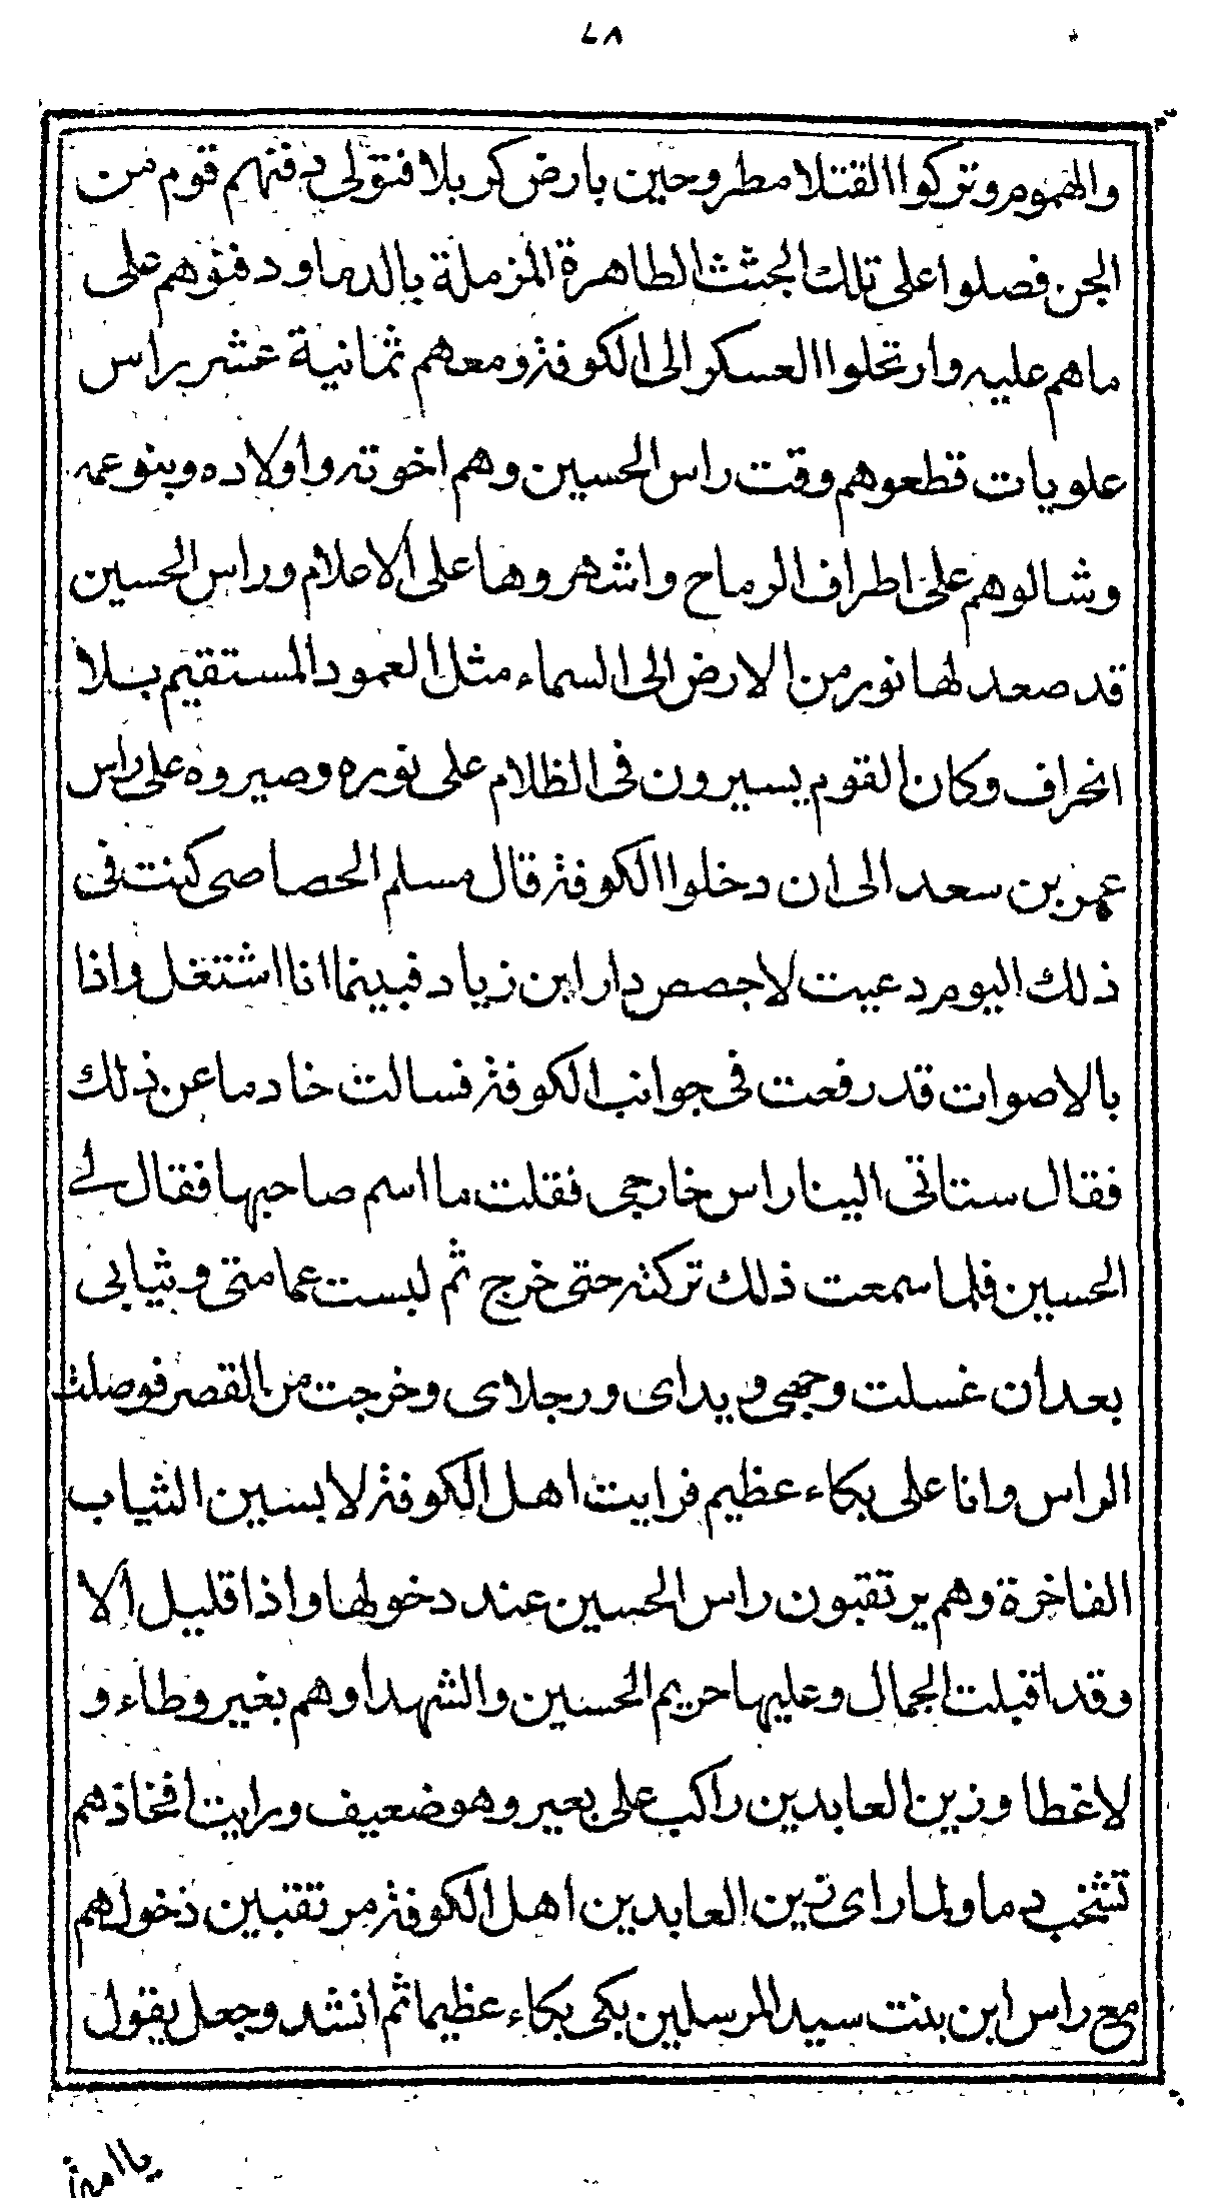 ٧٨
والهموم وتركوا القتلا مطروحين بارض كربلا فتولى دفنهم قوم من
الجن فصلوا على تلك الجثث الطاهرة المزملة بالدما ودفنوهم على
ماهم عليه وارتحلوا العسكر الى الكوفة ومعهم ثمانية عشر راس
علويات قطعوهم وقت راس الحسين وهم اخوته واولاده وبنوعمه
وشالوهم على اطراف الرماح واشهروها على الاعلام وراس الحسين
قد صعد لها نور من الارض الى السماء مثل العمود المستقيم بلا
انحراف وكان القوم يسيرون فى الظلام على نوره وصيروه على راس
عمر بن سعد الى ان دخلوا الكوفة قال مسلم الحصاصى كنت فى
ذلك اليوم دعيت لاجصص دار ابن زياد فبينما انا اشتغل واذا
بالاصوات قد رفعت فى جوانب الكوفة فسالت خادما عن ذلك
فقال ستاتى الينا راس خارجى فقلت ما اسم صاحبها فقال لى
الحسين فلما سمعت ذلك تركته حتى خرج ثم لبست عمامتى وثيابى
بعد ان غسلت وجهى ويداى ورجلاى وخرجت من القصر فوصلت
الراس وانا على بكاء عظيم فرايت اهل الكوفة لابسين الثياب
الفاخرة وهم يرتقبون راس الحسين عند دخولها واذا قليل الا
وقد اقبلت الجمال وعليها حريم الحسين والشهدا وهم بغير وطاء و
لاغطا وزين العابدين راكب على بعير وهو ضعيف ورايت افخاذهم
تشخب دما ولما راى زين العابدين اهل الكوفة مرتقبين دخولهم
مع راس ابن بنت سيد المرسلين بكى بكاء عظيما ثم انشد وجعل يقول